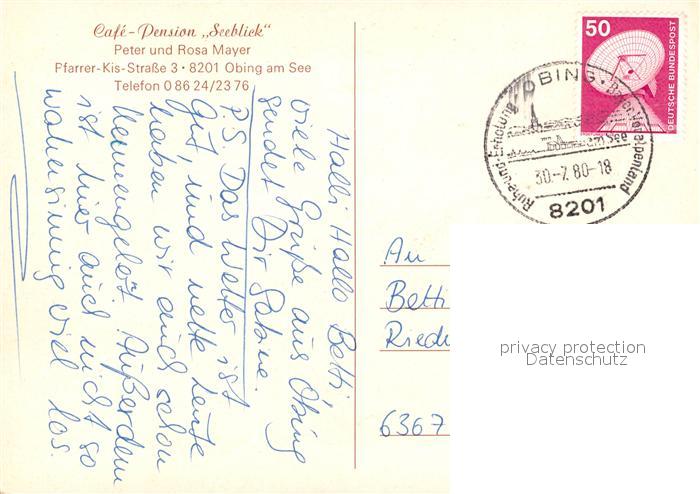 Café-Pension „Seeblick"
Peter und Rosa Mayer
Pfarrer-Kis-Straße 3 · 8201 Obing am See
Telefon 0 86 24/23 76
Halli Hallo Betti
viele Grüße aus Obing
sendet Dir Sabine.
P.S. Das Wetter ist
gut, und nette Leute
haben wir auch schon
kennengelernt. Außerdem
ist hier auch nicht so
wahnsinnig viel los.
50
DEUTSCHE BUNDESPOST
OBING
am See
Ruhe und Erholung
Bayer. Voralpenland
30.-7.80-18
8201
An
Betti
Riede
6367
privacy protection
Datenschutz